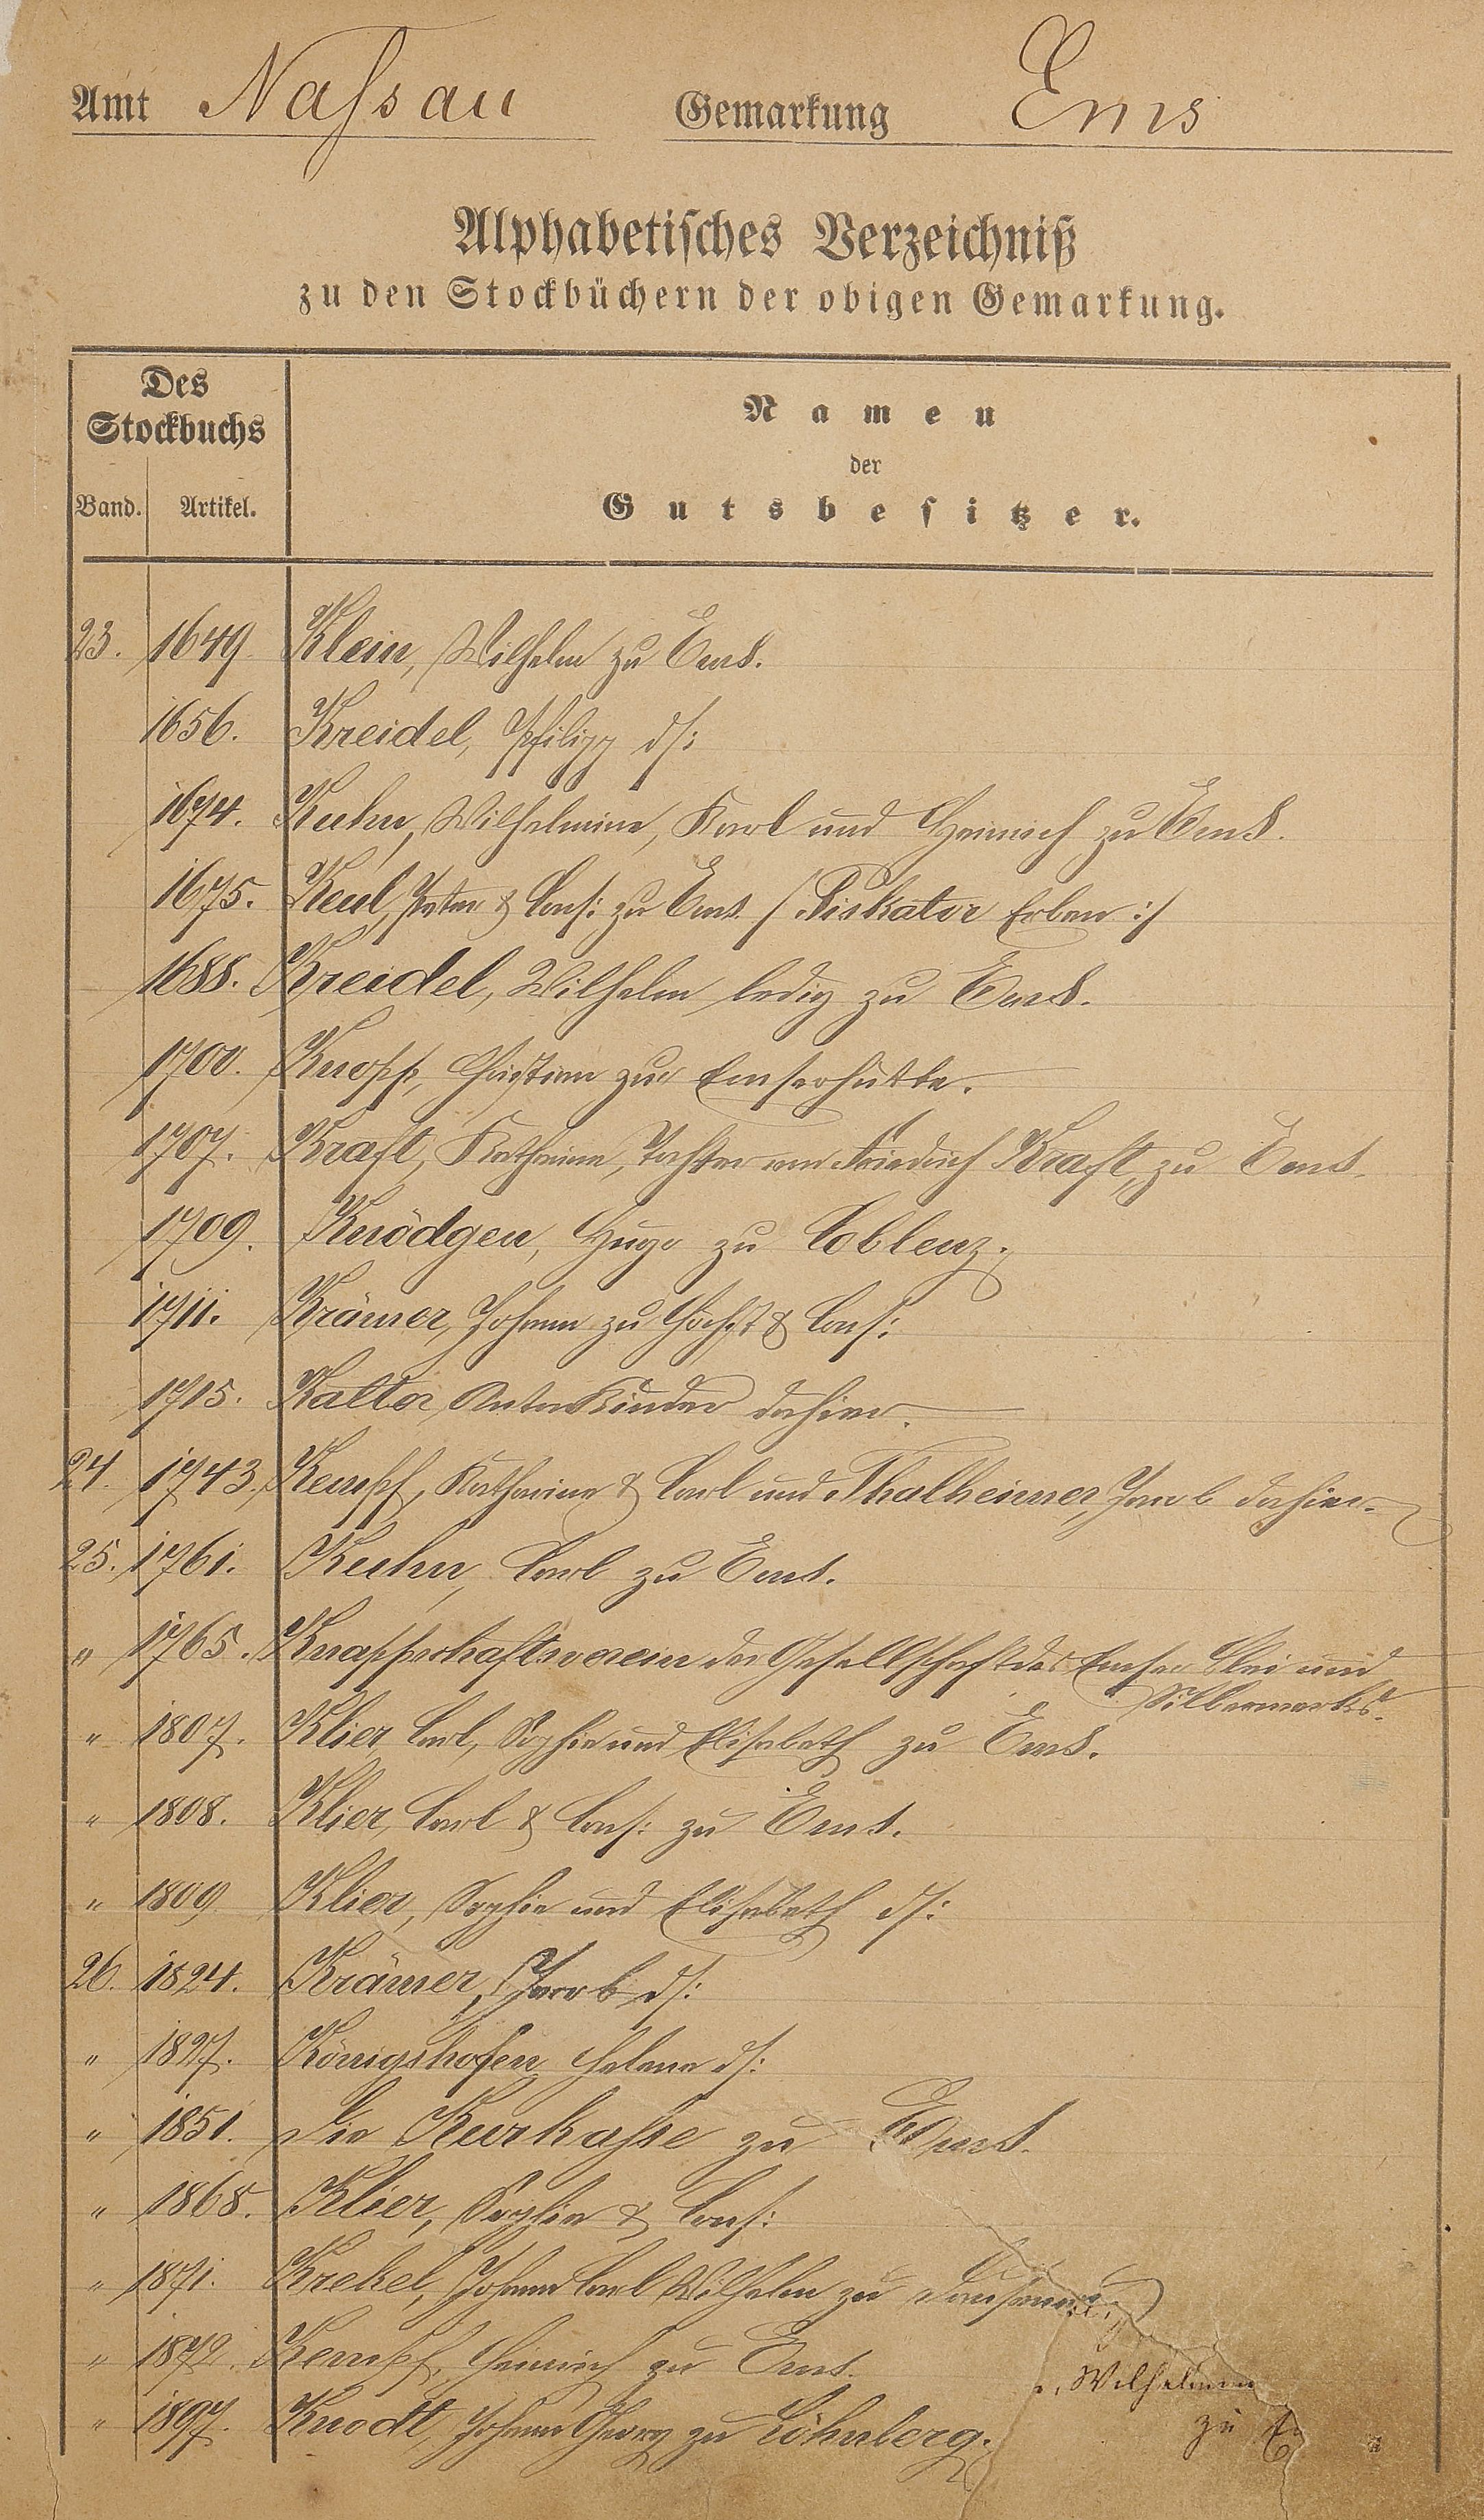 Amt Nassau Gemarkung Ems
Alphabetisches Verzeichniß
zu den Stockbüchern der obigen Gemarkung.
Des
Stockbuchs
Band. Artikel.
Namen
der
Gutsbesitzer.
23. 1649 Klein, Wilhelm zu Ems.
1656. Kreidel, Philipp ds:
1674. Kuhn, Wilhelmine, Karl und Heinrich zu Ems.
1675. Keul, Peter & Cons: zu Ems. / Piskator Erben :/
1688. Kreidel, Wilhelm ledig zu Ems.
1700. Knopp, Christian zur Emserhütte.
1707. Kraft, Katharine, Tochter von Friedrich Kraft, zu Ems.
1709. Knödgen, Hugo zu Coblenz.
1711. Krämer, Johann zu Höchst & Cons:
1715. Kaltor, Anton Kinder dahier.
24. 1743. Kempf, Katharine & Carl und Thalheimer, Jacob dahier.
25. 1761. Kuhn, Carl zu Ems.
" 1765. Knappschaftsverein der Gesellschaft des Emser Blei und
Silberwerks.
" 1807. Klier, Carl, Sophie und Elisabeth zu Ems.
" 1808. Klier, Carl & Cons: zu Ems.
" 1809 Klier, Sophie und Elisabeth ds:
26. 1824. Krämer, Jacob ds:
" 1827. Königshofen, Helene ds:
" 1851. Die Kurkasse zu Ems.
" 1868. Klier, Sophie & Cons:
" 1871. Krekel, Johann Carl Wilhelm zu Dausenau.
" 1872. Kempf, Heinrich zu Ems.
Wilhelmine
" 1897. Knodt, Johann Georg zu Löhnberg.
zu